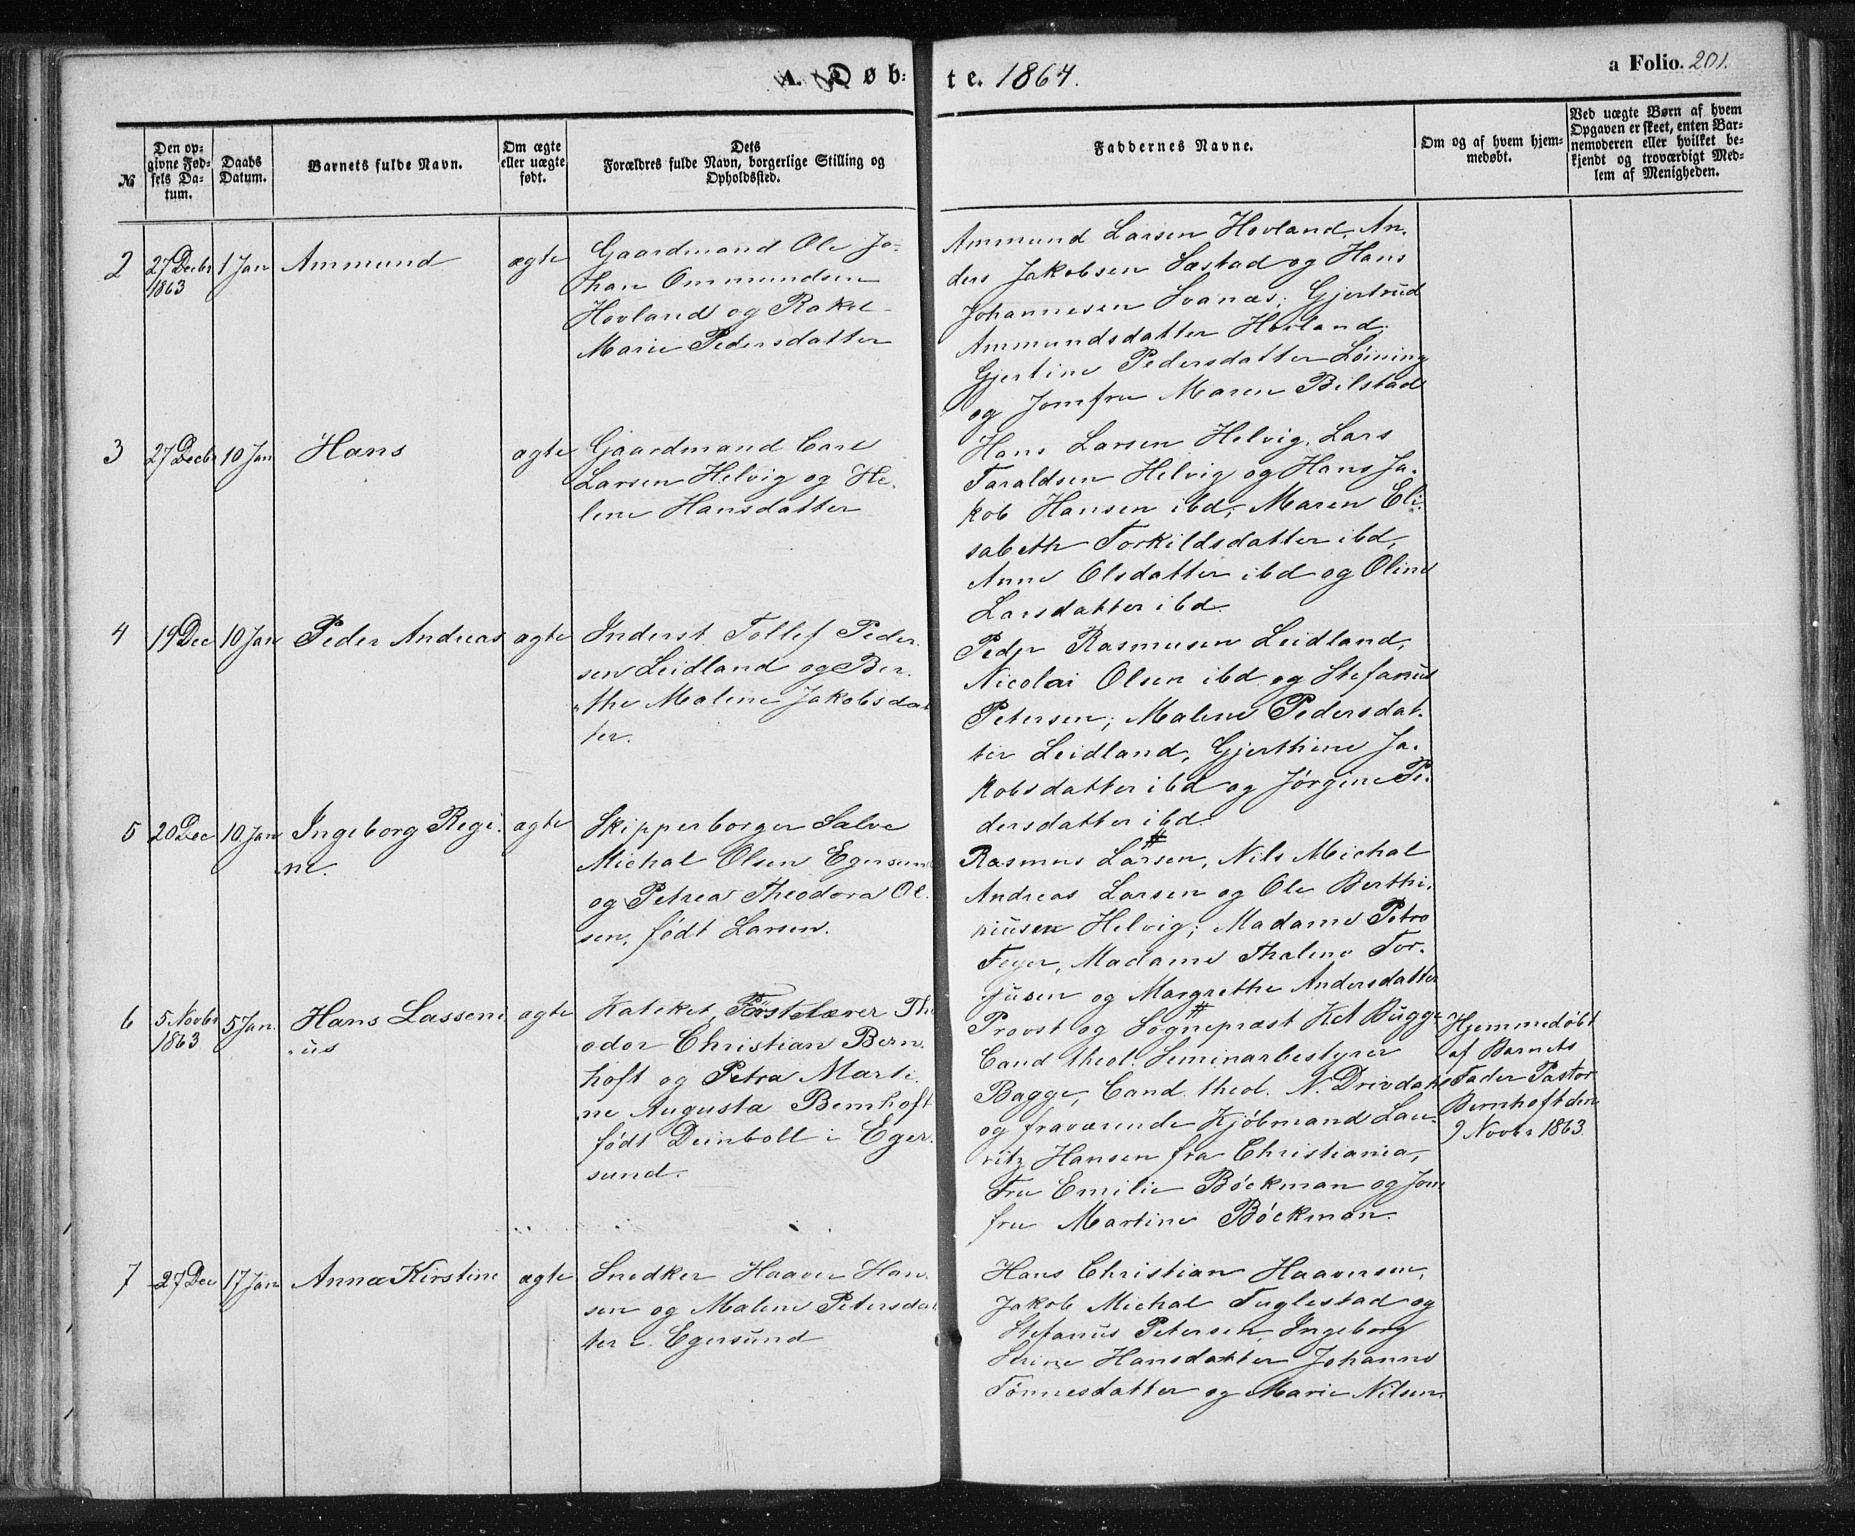 A. Døbte. 1864.
a Folio. 201.
№
Den op-
givne Fød-
sels Da-
tum.
Daabs
Datum.
Barnets fulde Navn.
Om ægte
eller uægte
født.
Dets
Forældres fulde Navn, borgerlige Stilling og
Opholdssted.
Faddernes Navne.
Om og af hvem hjem-
medøbt.
Ved uægte Børn af hvem
Opgaven er skeet, enten Bar-
nemoderen eller hvilket be-
kjendt og troværdigt Med-
lem af Menigheden.
2
27 Decbr
1863
1 Jan
Ammund
ægte
Gaardmand Ole Jo-
han Ommundsen
Hovland og Rakel
Marie Pedersdatter
Ammund Larsen Hovland, An-
ders Jakobsen Sæstad og Hans
Johannesen Svanæs; Gjertrud
Ammundsdatter Hovland,
Gjertine Pedersdatter Løining
og Jomfru Maren Bilstad
3
27 Decbr
10 Jan
Hans
ægte
Gaardmand Carl
Larsen Helvig og He-
lene Hansdatter
Hans Larsen Helvig, Lars
Taraldsen Helvig og Hans Ja-
kob Hansen ibd; Maren Eli-
sabeth Torkildsdatter ibd,
Anne Olsdatter ibd og Oline
Larsdatter ibd.
4
14 Dec
10 Jan
Peder Andreas
ægte
Inderst Tollef Peder
sen Leidland og Ber-
the Malene Jakobsdat
ter.
Peder Rasmusen Leidland,
Nicolai Olsen ibd og Stefanus
Petersen; Malene Pedersdat-
ter Leidland, Gjerthine Ja-
kobsdatter ibd og Jørgine Pe-
dersdatter ibd.
5
20 Dec
10 Jan
Ingeborg Regi-
ne.
ægte
Skipperborger Salve
Michal Olsen Egersund
og Petrea Theodora Ol-
sen, født Larsen.
Rasmus Larsen, Nils Michal
Andreas Larsen og Ole Berthi-
niusen Helvig; Madame Petra
Feyer, Madame Thalena Tor-
jusen og Margrethe Andersdatter
6
5 Novbr
1863
5 Jan.
Hans Lasseni
us
ægte
Kateket, Førstelærer Th
odor Christian Bern
hoft og Petra Marti
ne Augusta Bernhoft
født Deinboll i Eger-
sund.
Provst og Sognepræst Ket Bugge
Cand theol. Seminarbestyrer
Bagge, Cand. theol. N. Drivdahl
og fraværende Kjøbmand Lau-
ritz Hansen fra Christiania,
Fru Emilie Bøckman og Jom
fru Martine Bøckman.
Hjemmedøbt
af Barnets
Fader Pastor
Bernhoft den
9 Novbr 1863.
7
27 Dec
17 Jan
Anna Kirstine
ægte
Snedker Haaver Han-
sen og Malene Petersdat
ter i Egersund
Hans Christian Haaversen,
Jakob Michal Fuglestad og
Stefanus Petersen, Ingeborg
Serine Hansdatter Johanne
Tønnesdatter og Marie Nilsen.